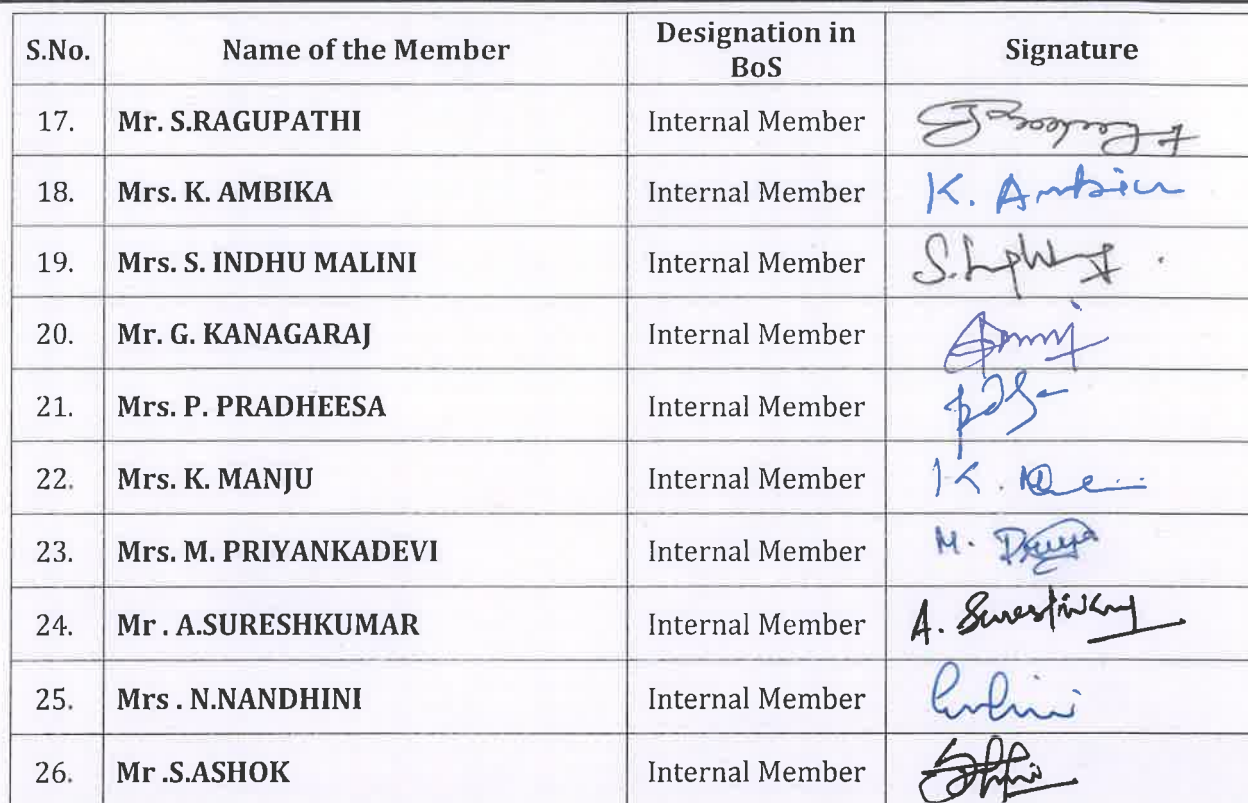 S.No. Name of the Member Designation in BoS Signature
17. Mr. S.RAGUPATHI Internal Member
18. Mrs. K. AMBIKA Internal Member K. Ambica
19. Mrs. S. INDHU MALINI Internal Member
20. Mr. G. KANAGARAJ Internal Member
21. Mrs. P. PRADHEESA Internal Member
22. Mrs. K. MANJU Internal Member K.
23. Mrs. M. PRIYANKADEVI Internal Member M.
24. Mr . A.SURESHKUMAR Internal Member A.
25. Mrs . N.NANDHINI Internal Member
26. Mr .S.ASHOK Internal Member